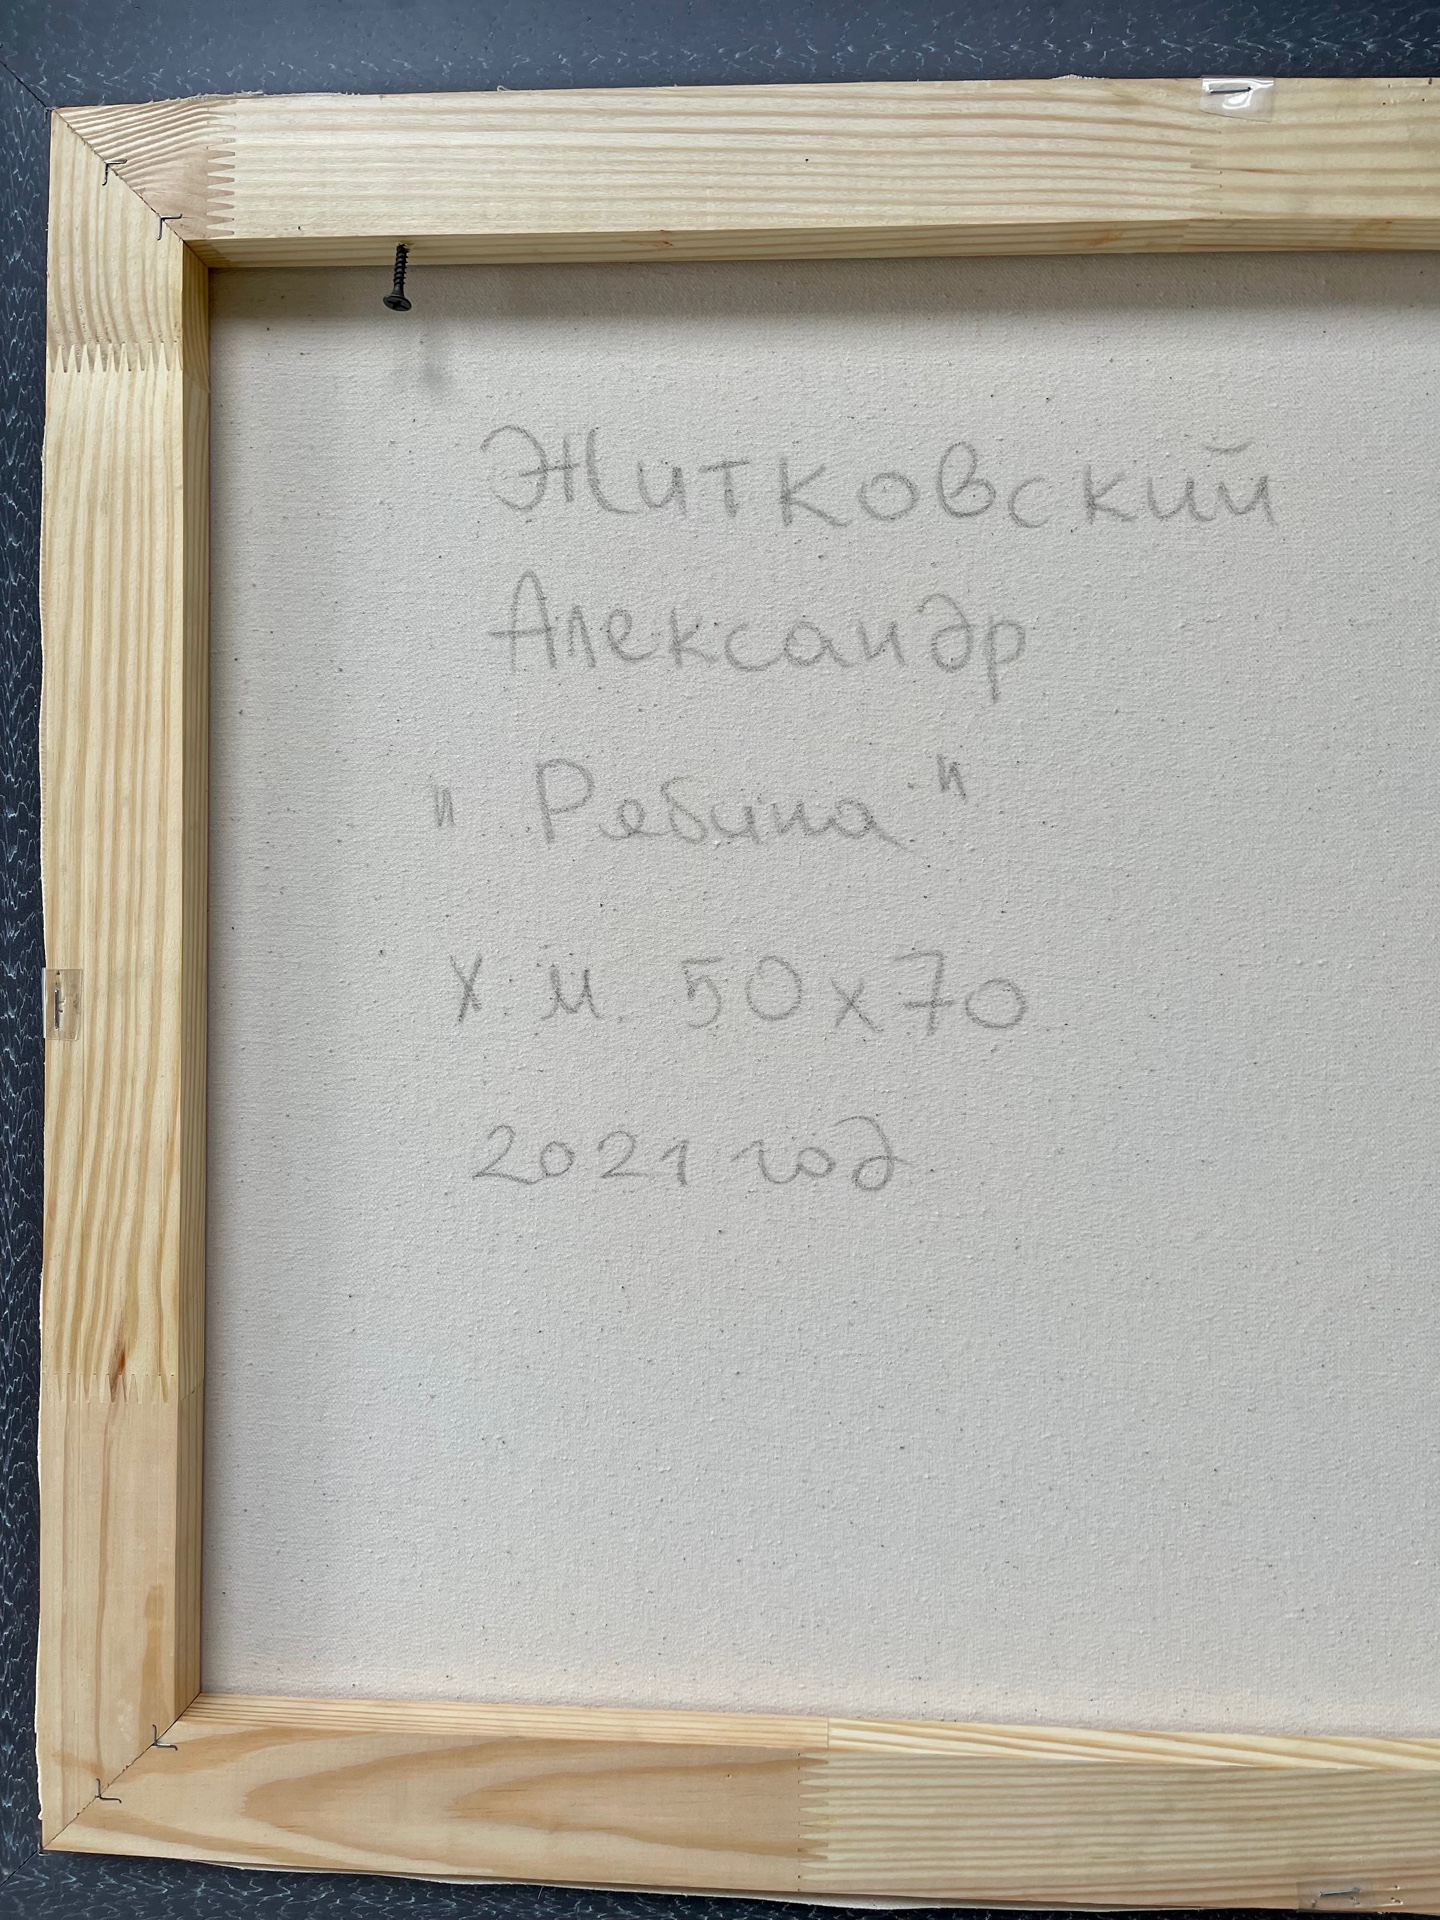 Житковский
Александр
"Рябина"
х. м. 50х70
2021 год